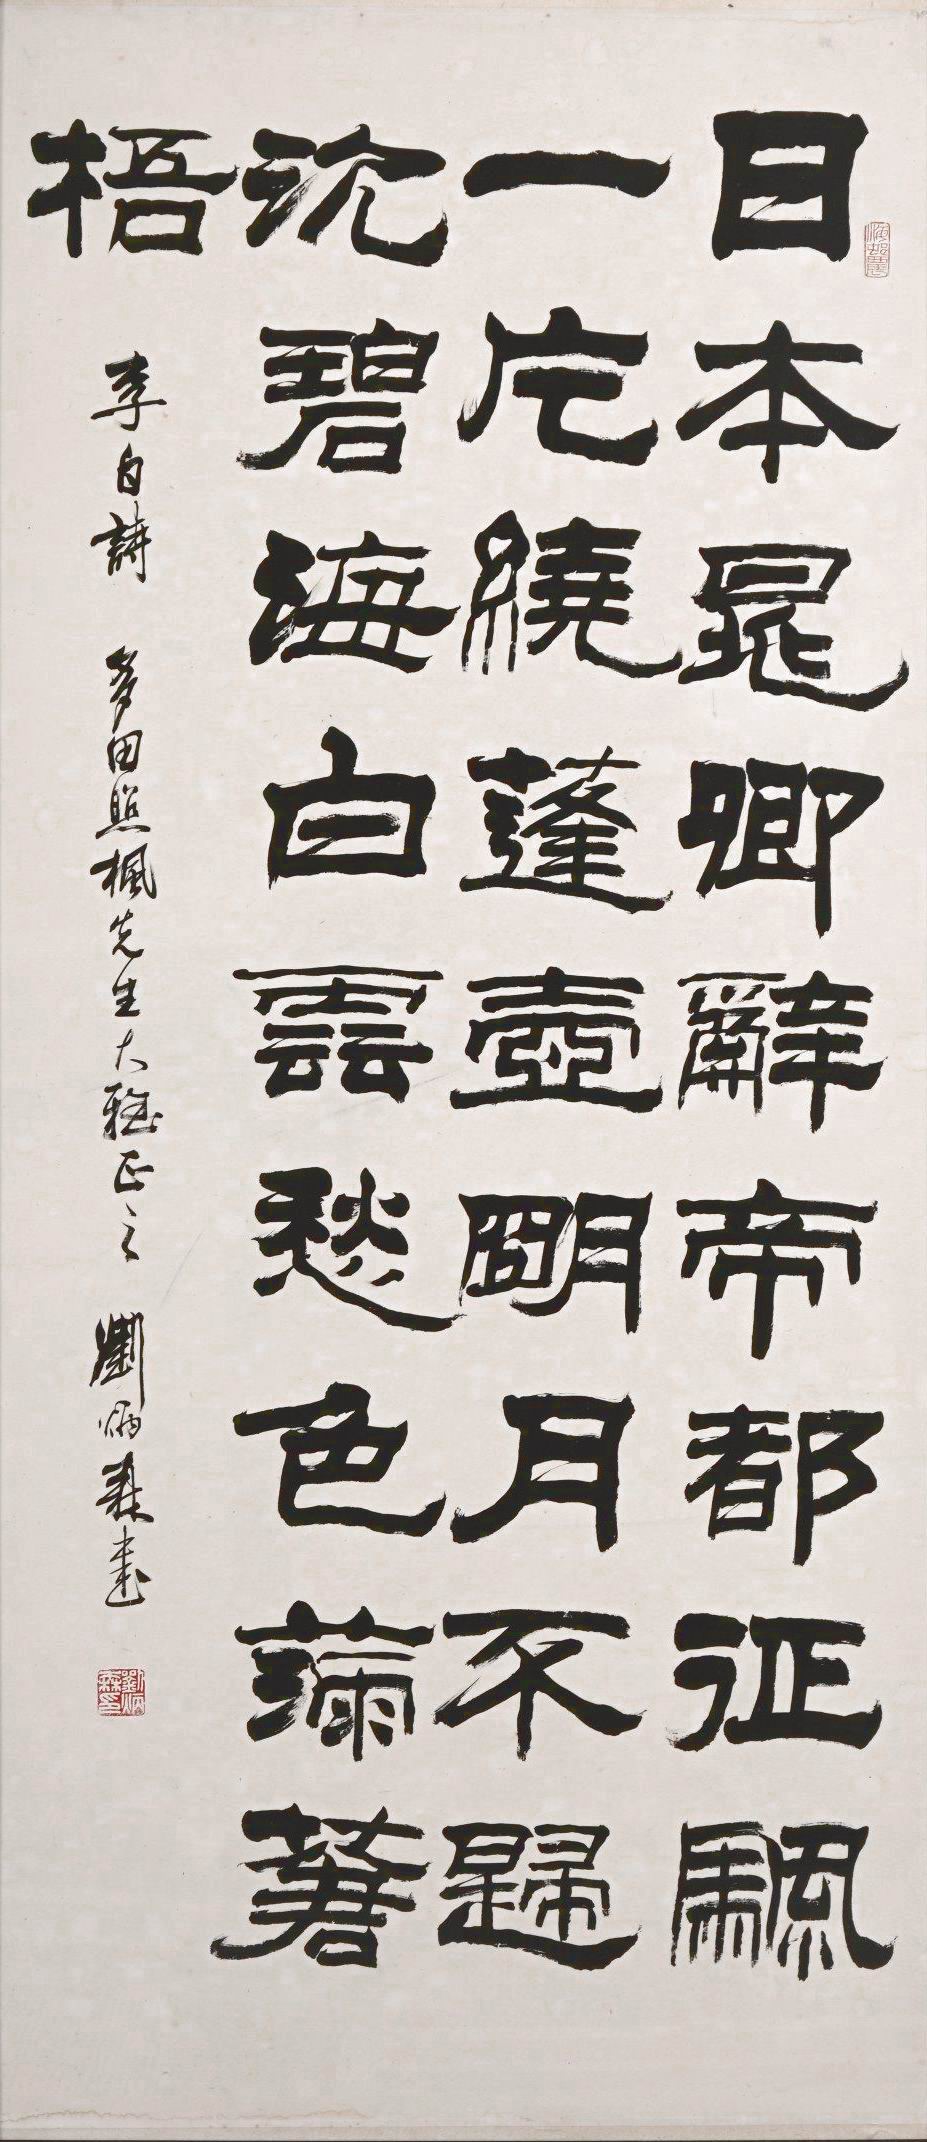 日本晁卿辭帝都征颿
一片繞蓬壺朙月不歸
沈碧海白雲愁色滿蒼
梧
李白詩 多田照楓先生大雅正之 劉炳森書
劉炳森印